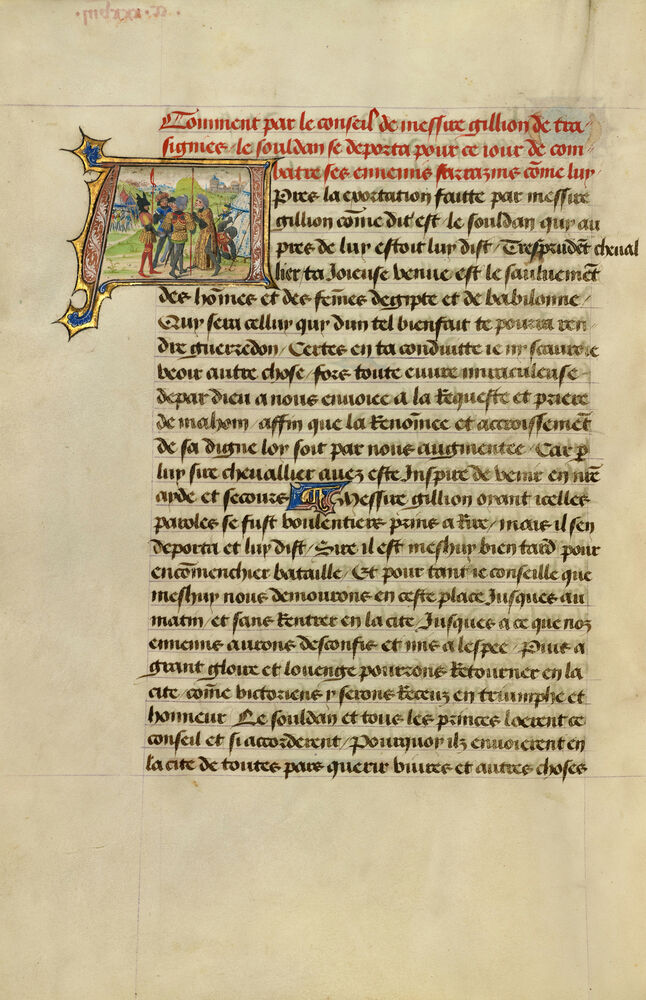 Comment par le conseil de messire gillion de tra
signies / le souldan se deporta pour ce iour de com
batre ses ennemis sarrazins cõme luy
Apres la exortation faitte par messire
gillion cõme dit est / le souldan quy au
pres de luy estoit luy dist / Tresprudẽt cheval
lier ta Joieuse venue est le sauluemẽt
des hõmes et des fẽmes degipte et de babilonne /
Quy sera celluy quy dun tel bienfait te pourra ren
dre guerredon / Certes en ta conduitte ie ny scauroie
veoir autre chose / fors toute euure miraculeuse
depar dieu a nous envoiee a la Requeste et priere
de mahom / affin que la Renõmee et accroissemẽt
de sa digne loy soit par nous augmentee / Car p
luy sire chevallier avez este Inspire de venir en nr̃e
ayde et secours Messire gillion oyant icelles
paroles se fust voulentiers prins a Rire / mais il sen
deporta et luy dist / Sire il est meshuy bien tard pour
encõmenchier bataille / Et pour tant ie conseille que
meshuy nous demourons en ceste place Jusques au
matin / et sans Rentrer en la cite / Jusques a ce que noz
ennemis aurons desconfis et mis a lespee / Puis a
grant gloire et louenge pourrons Retourner en la
cite / cõme victoriens y serons Receuz en triumphe et
honneur Le souldan et tous les princes loerent ce
conseil et si accorderent / Pourquoy ilz envoierent en
la cite de toutes pars querir vivres et autres choses